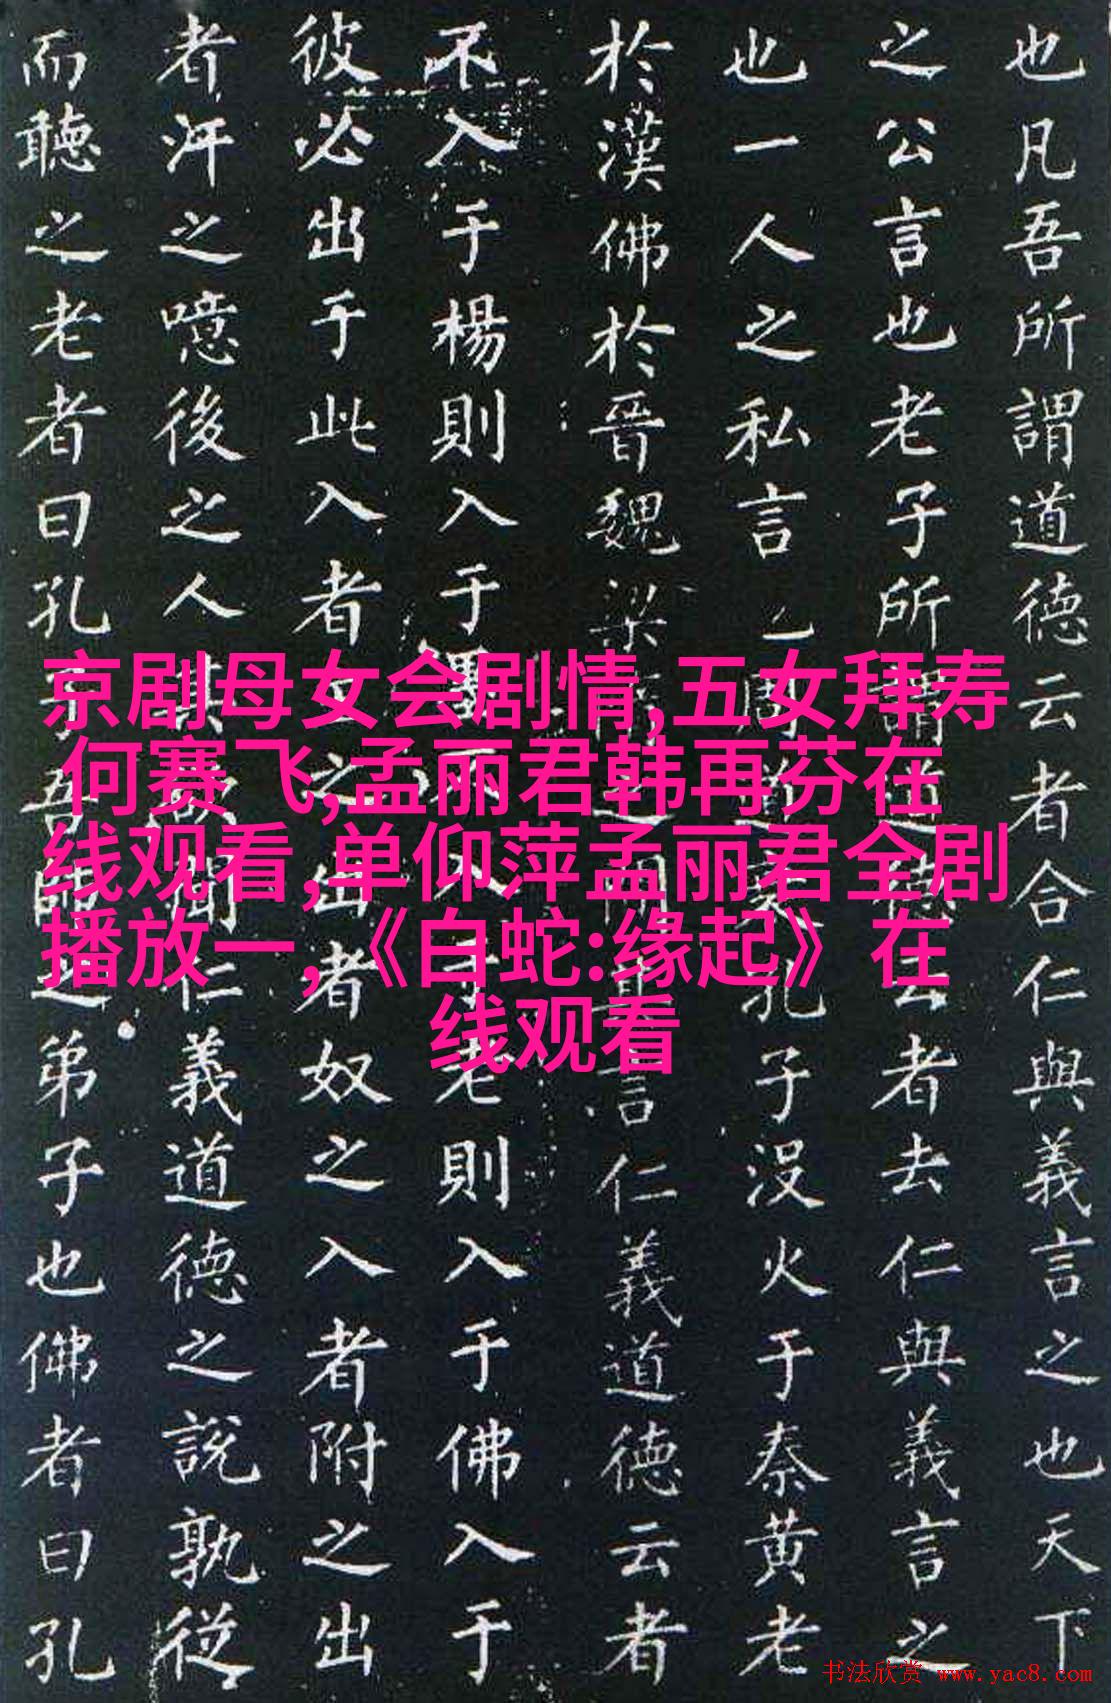 也凡吾所謂道德云者合仁與義言之也天下
之公言也老子所謂道德云者去仁與義言之
也一人之私言周道衰孔子没火于秦黄老
於漢佛於晉魏梁間其言仁義道德云者
不入于楊則入于墨不入于老則入于佛入于
彼必出于此入者主之出者奴之入者附之出
者汙之噫後之人其欲聞仁義道德之説孰從
而聽之老者曰孔子吾師之弟子也佛者曰孔
京剧母女会剧情,五女拜寿
何赛飞,孟丽君韩再芬在
线观看,单仰萍孟丽君全剧
播放一,《白蛇:缘起》在
线观看
书法欣赏 www.yac8.com